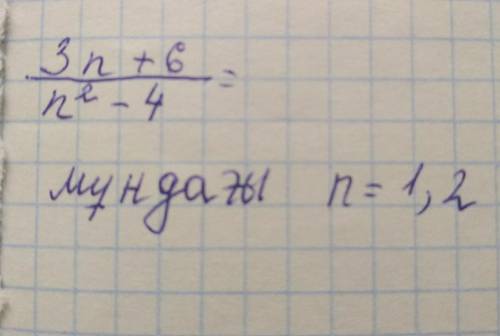 3n + 6
n² - 4 =
мұндағы n = 1,2